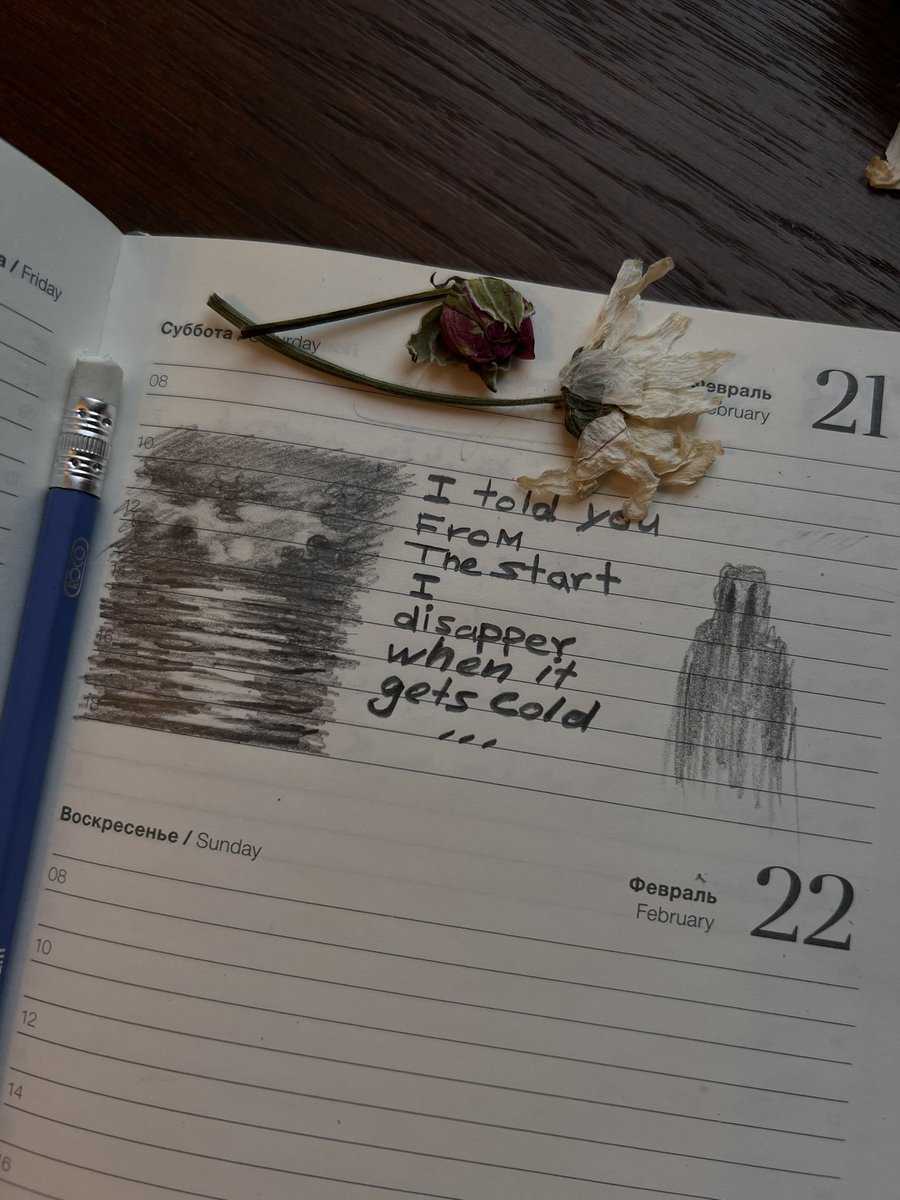 а / Friday
Суббота / Saturday
Февраль
February
21
08
10
12
16
18
I told you
From
The start
I
disapper
when it
gets cold
...
Воскресенье / Sunday
Февраль
February
22
08
10
12
14
16